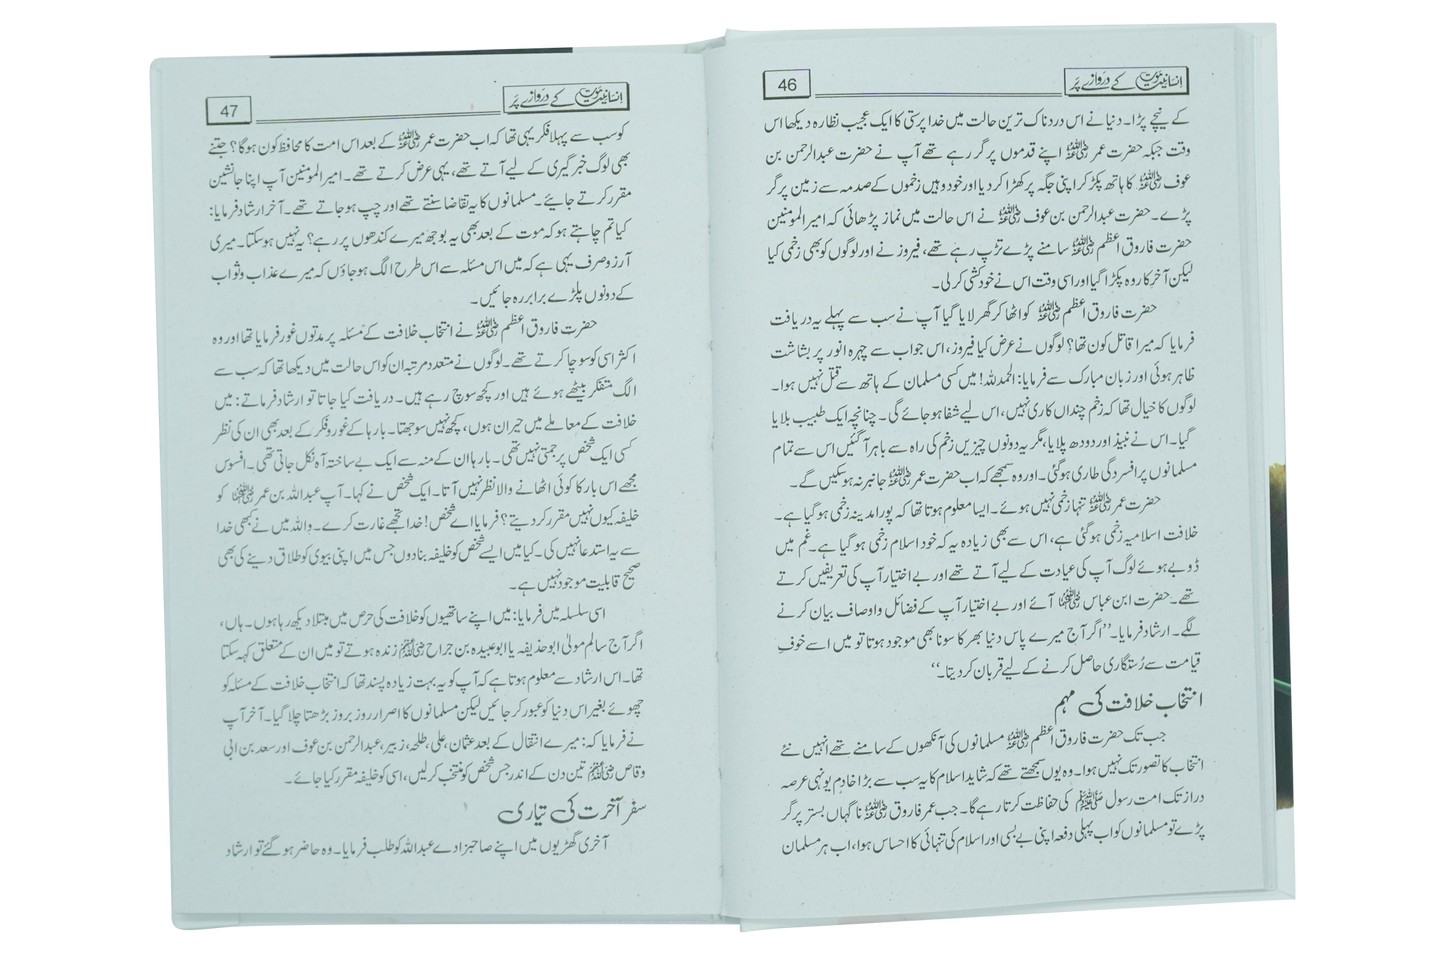 46
انسانیت موت کے دروازے پر
کے نیچے پڑا۔ دنیا نے اس دردناک ترین حالت میں خدا پرستی کا ایک عجیب نظارہ دیکھا اس
وقت جبکہ حضرت عمر رضی اللہ عنہ اپنے قدموں پر گر رہے تھے آپ نے حضرت عبدالرحمن بن
عوف رضی اللہ عنہ کا ہاتھ پکڑ کر اپنی جگہ پر کھڑا کر دیا اور خود وہیں زخموں کے صدمہ سے زمین پر گر
پڑے۔ حضرت عبدالرحمن بن عوف رضی اللہ عنہ نے اس حالت میں نماز پڑھائی کہ امیر المومنین
حضرت فاروق اعظم رضی اللہ عنہ سامنے پڑے تڑپ رہے تھے، فیروز نے اور لوگوں کو بھی زخمی کیا
لیکن آخر کار وہ پکڑا گیا اور اسی وقت اس نے خودکشی کر لی۔
حضرت فاروق اعظم رضی اللہ عنہ کو اٹھا کر گھر لایا گیا آپ نے سب سے پہلے یہ دریافت
فرمایا کہ میرا قاتل کون تھا؟ لوگوں نے عرض کیا فیروز، اس جواب سے چہرہ انور پر بشاشت
ظاہر ہوئی اور زبان مبارک سے فرمایا: الحمد للہ! میں کسی مسلمان کے ہاتھ سے قتل نہیں ہوا۔
لوگوں کا خیال تھا کہ زخم چنداں کاری نہیں، اس لیے شفا ہو جائے گی۔ چنانچہ ایک طبیب بلایا
گیا۔ اس نے نبیذ اور دودھ پلایا، مگر یہ دونوں چیزیں زخم کی راہ سے باہر آ گئیں اس سے تمام
مسلمانوں پر افسردگی طاری ہو گئی۔ اور وہ سمجھے کہ اب حضرت عمر رضی اللہ عنہ جانبر نہ ہو سکیں گے۔
حضرت عمر رضی اللہ عنہ تنہا زخمی نہیں ہوئے۔ ایسا معلوم ہوتا تھا کہ پورا مدینہ زخمی ہو گیا ہے۔
خلافت اسلامیہ زخمی ہو گئی ہے، اس سے بھی زیادہ یہ کہ خود اسلام زخمی ہو گیا ہے۔ غم میں
ڈوبے ہوئے لوگ آپ کی عیادت کے لیے آتے تھے اور بے اختیار آپ کی تعریفیں کرتے
تھے۔ حضرت ابن عباس رضی اللہ عنہما آئے اور بے اختیار آپ کے فضائل و اوصاف بیان کرنے
لگے۔ ارشاد فرمایا۔ ”اگر آج میرے پاس دنیا بھر کا سونا بھی موجود ہوتا تو میں اسے خوفِ
قیامت سے رُستگاری حاصل کرنے کے لیے قربان کر دیتا۔“
انتخاب خلافت کی مہم
جب تک حضرت فاروق اعظم رضی اللہ عنہ مسلمانوں کی آنکھوں کے سامنے تھے انہیں نئے
انتخاب کا تصور تک نہیں ہوا۔ وہ یوں سمجھتے تھے کہ شاید اسلام کا یہ سب سے بڑا خادم یونہی عرصہ
دراز تک امت رسول صلی اللہ علیہ وسلم کی حفاظت کرتا رہے گا۔ جب عمر فاروق رضی اللہ عنہ ناگہاں بستر پر گر
پڑے تو مسلمانوں کو اب پہلی دفعہ اپنی بے بسی اور اسلام کی تنہائی کا احساس ہوا، اب ہر مسلمان
47
انسانیت موت کے دروازے پر
کو سب سے پہلا فکر یہی تھا کہ اب حضرت عمر رضی اللہ عنہ کے بعد اس امت کا محافظ کون ہو گا؟ جتنے
بھی لوگ خبر گیری کے لیے آتے تھے، یہی عرض کرتے تھے۔ امیر المومنین آپ اپنا جانشین
مقرر کرتے جایئے۔ مسلمانوں کا یہ تقاضا سنتے تھے اور چپ ہو جاتے تھے۔ آخر ارشاد فرمایا:
کیا تم چاہتے ہو کہ موت کے بعد بھی یہ بوجھ میرے کندھوں پر رہے؟ یہ نہیں ہو سکتا۔ میری
آرزو صرف یہی ہے کہ میں اس مسئلہ سے اس طرح الگ ہو جاؤں کہ میرے عذاب و ثواب
کے دونوں پلڑے برابر رہ جائیں۔
حضرت فاروق اعظم رضی اللہ عنہ نے انتخاب خلافت کے مسئلہ پر مدتوں غور فرمایا تھا اور وہ
اکثر اسی کو سوچا کرتے تھے۔ لوگوں نے متعدد مرتبہ ان کو اس حالت میں دیکھا تھا کہ سب سے
الگ متفکر بیٹھے ہوئے ہیں اور کچھ سوچ رہے ہیں۔ دریافت کیا جاتا تو ارشاد فرماتے: میں
خلافت کے معاملے میں حیران ہوں، کچھ نہیں سوجھتا۔ بارہا کے غور و فکر کے بعد بھی ان کی نظر
کسی ایک شخص پر جمتی نہیں تھی۔ بارہا ان کے منہ سے ایک بے ساختہ آہ نکل جاتی تھی۔ افسوس
مجھے اس بار کا کوئی اٹھانے والا نظر نہیں آتا۔ ایک شخص نے کہا۔ آپ عبداللہ بن عمر رضی اللہ عنہما کو
خلیفہ کیوں نہیں مقرر کر دیتے؟ فرمایا اے شخص! خدا تجھے غارت کرے۔ واللہ میں نے کبھی خدا
سے یہ استدعا نہیں کی۔ کیا میں ایسے شخص کو خلیفہ بنا دوں جس میں اپنی بیوی کو طلاق دینے کی بھی
صحیح قابلیت موجود نہیں ہے۔
اسی سلسلہ میں فرمایا: میں اپنے ساتھیوں کو خلافت کی حرص میں مبتلا دیکھ رہا ہوں۔ ہاں،
اگر آج سالم مولیٰ ابو حذیفہ یا ابو عبیدہ بن جراح رضی اللہ عنہم زندہ ہوتے تو میں ان کے متعلق کہہ سکتا
تھا۔ اس ارشاد سے معلوم ہوتا ہے کہ آپ کو یہ بہت زیادہ پسند تھا کہ انتخاب خلافت کے مسئلہ کو
چھوئے بغیر اس دنیا کو عبور کر جائیں لیکن مسلمانوں کا اصرار روز بروز بڑھتا چلا گیا۔ آخر آپ
نے فرمایا کہ: میرے انتقال کے بعد عثمان، علی، طلحہ، زبیر، عبدالرحمن بن عوف اور سعد بن ابی
وقاص رضی اللہ عنہم تین دن کے اندر جس شخص کو منتخب کر لیں، اسی کو خلیفہ مقرر کیا جائے۔
سفر آخرت کی تیاری
آخری گھڑیوں میں اپنے صاحبزادے عبداللہ کو طلب فرمایا۔ وہ حاضر ہو گئے تو ارشاد